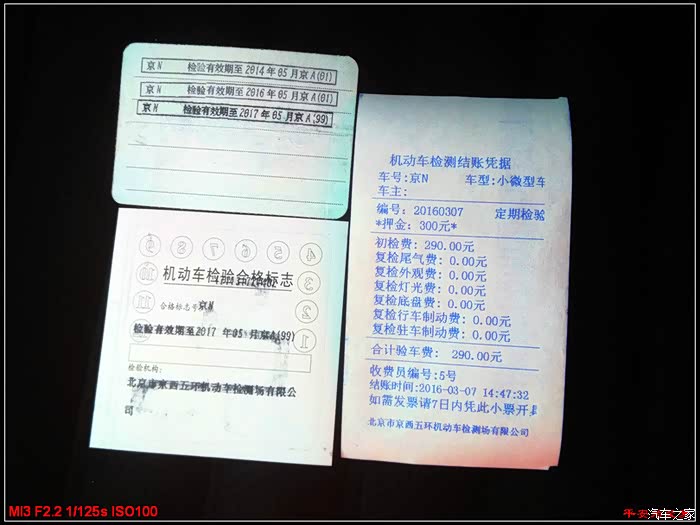 京N 检验有效期至2014年05月京A(01)
京N 检验有效期至2016年05月京A(01)
京N 检验有效期至2017年05月京A(99)
4
5
6
7
8
9
10
3
机动车检验合格标志
11
2
合格标志号京N
1
检验有效期至2017 年05 月京A(99)
检验机构:
北京市京西五环机动车检测场有限公
司
机动车检测结账凭据
车号:京N 车型:小微型车
车主:
编号: 20160307 定期检验
*押金: 300元*
初检费: 290.00元
复检尾气费: 0.00元
复检外观费: 0.00元
复检灯光费: 0.00元
复检底盘费: 0.00元
复检行车制动费: 0.00元
复检驻车制动费: 0.00元
合计验车费: 290.00元
收费员编号:5号
结账时间:2016-03-07 14:47:32
如需发票请7日内凭此小票开具
北京市京西五环机动车检测场有限公司
MI3 F2.2 1/125s ISO100
汽车之家